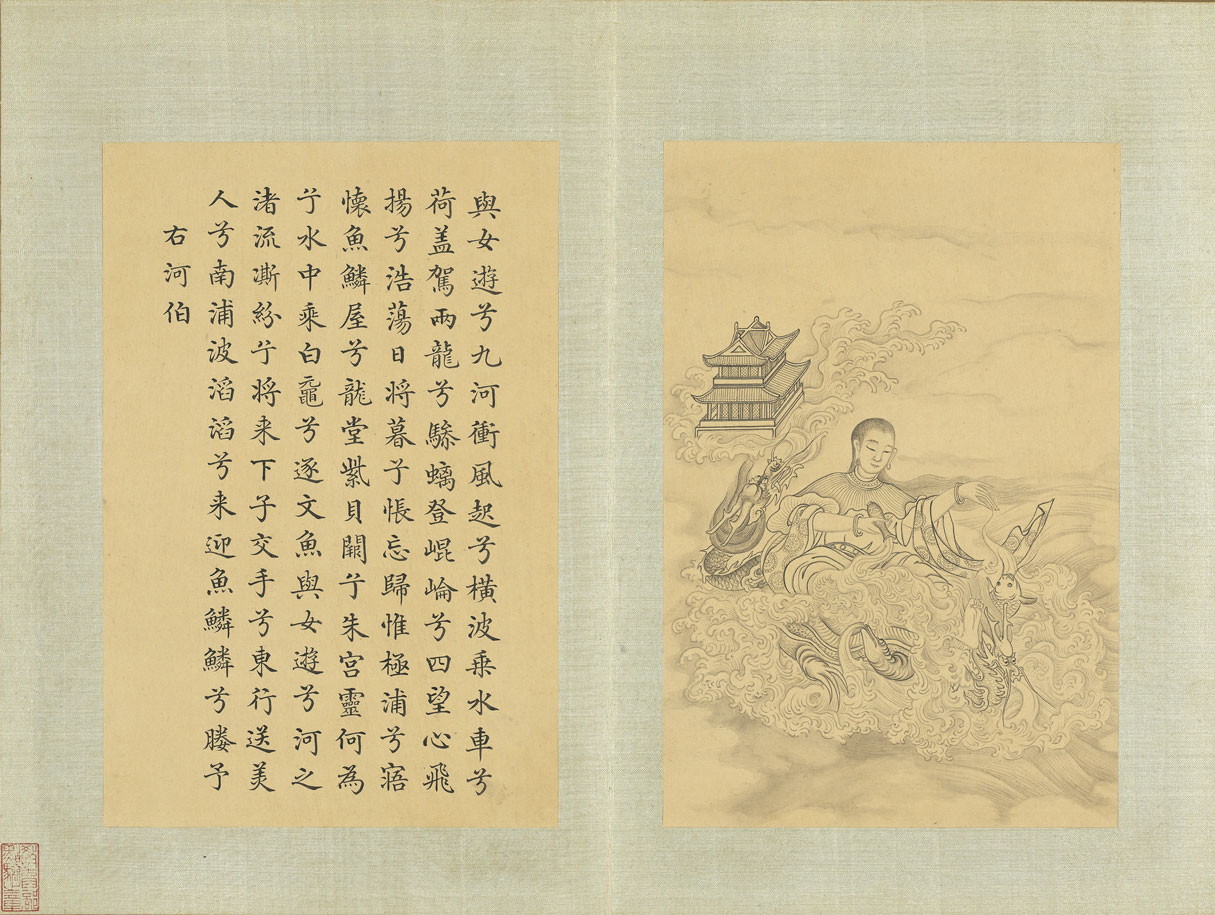 與女遊兮九河衝風起兮橫波乗水車兮
荷盖駕兩龍兮驂螭登崐崘兮四望心飛
揚兮浩蕩日将暮子悵忘歸惟極浦兮寤
懷魚鱗屋兮龍堂紫貝闕兮朱宮靈何為
兮水中乗白黿兮逐文魚與女遊兮河之
渚流澌紛兮将来下子交手兮東行送美
人兮南浦波滔滔兮来迎魚鱗鱗兮媵予
右河伯
教育部
點驗之章